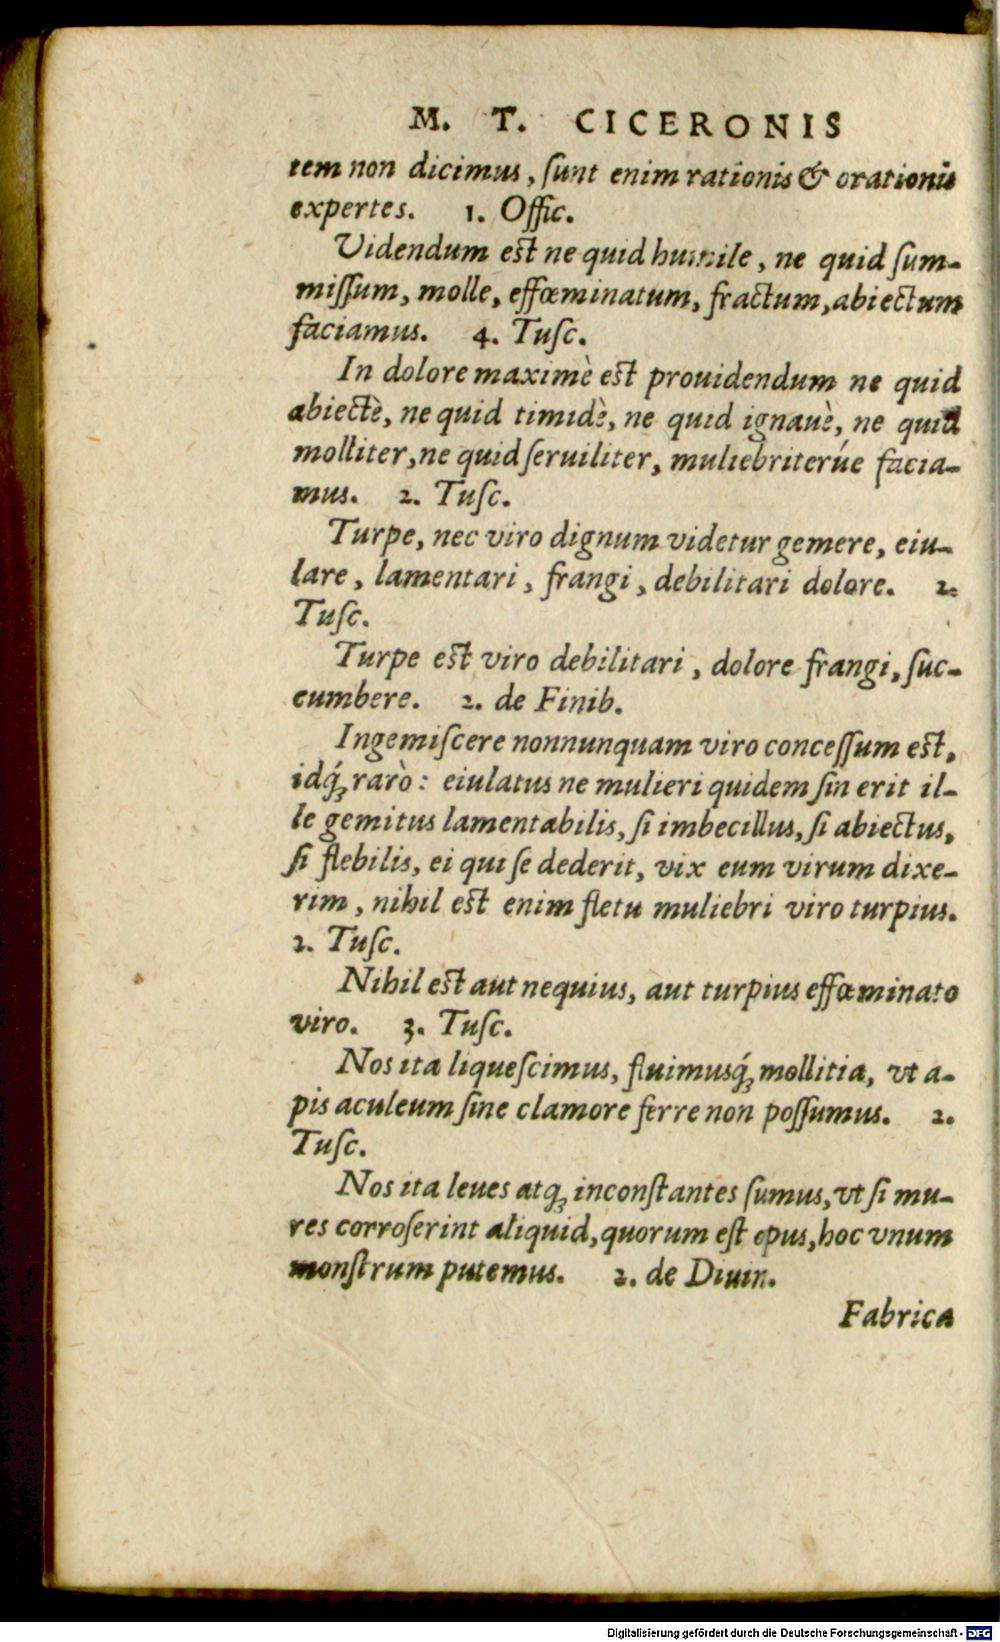 M. T. CICERONIS
tem non dicimus, ſunt enim rationis & orationis
expertes. 1. Offic.
Videndum est ne quid humile, ne quid ſum-
miſſum, molle, effœminatum, fractum, abiectum
faciamus. 4. Tuſc.
In dolore maximè est prouidendum ne quid
abiectè, ne quid timidè, ne quid ignauè, ne quid
molliter, ne quid ſeruiliter, muliebriterúe facia-
mus. 2. Tuſc.
Turpe, nec viro dignum videtur gemere, eiu-
lare, lamentari, frangi, debilitari dolore. 2.
Tuſc.
Turpe est viro debilitari, dolore frangi, ſuc-
cumbere. 2. de Finib.
Ingemiſcere nonnunquam viro conceſſum est,
idq́ꝫ rarò: eiulatus ne mulieri quidem ſin erit il-
le gemitus lamentabilis, ſi imbecillus, ſi abiectus,
ſi flebilis, ei qui ſe dederit, vix eum virum dixe-
rim, nihil est enim fletu muliebri viro turpius.
2. Tuſc.
Nihil est aut nequius, aut turpius effœminato
viro. 3. Tuſc.
Nos ita liqueſcimus, fluimusq́ꝫ mollitia, vt a-
pis aculeum ſine clamore ferre non poſſumus. 2.
Tuſc.
Nos ita leues atqꝫ inconſtantes ſumus, vt ſi mu-
res corroſerint aliquid, quorum eſt opus, hoc vnum
monſtrum putemus. 2. de Diuin.
Fabrica
Digitalisierung gefördert durch die Deutsche Forschungsgemeinschaft - DFG